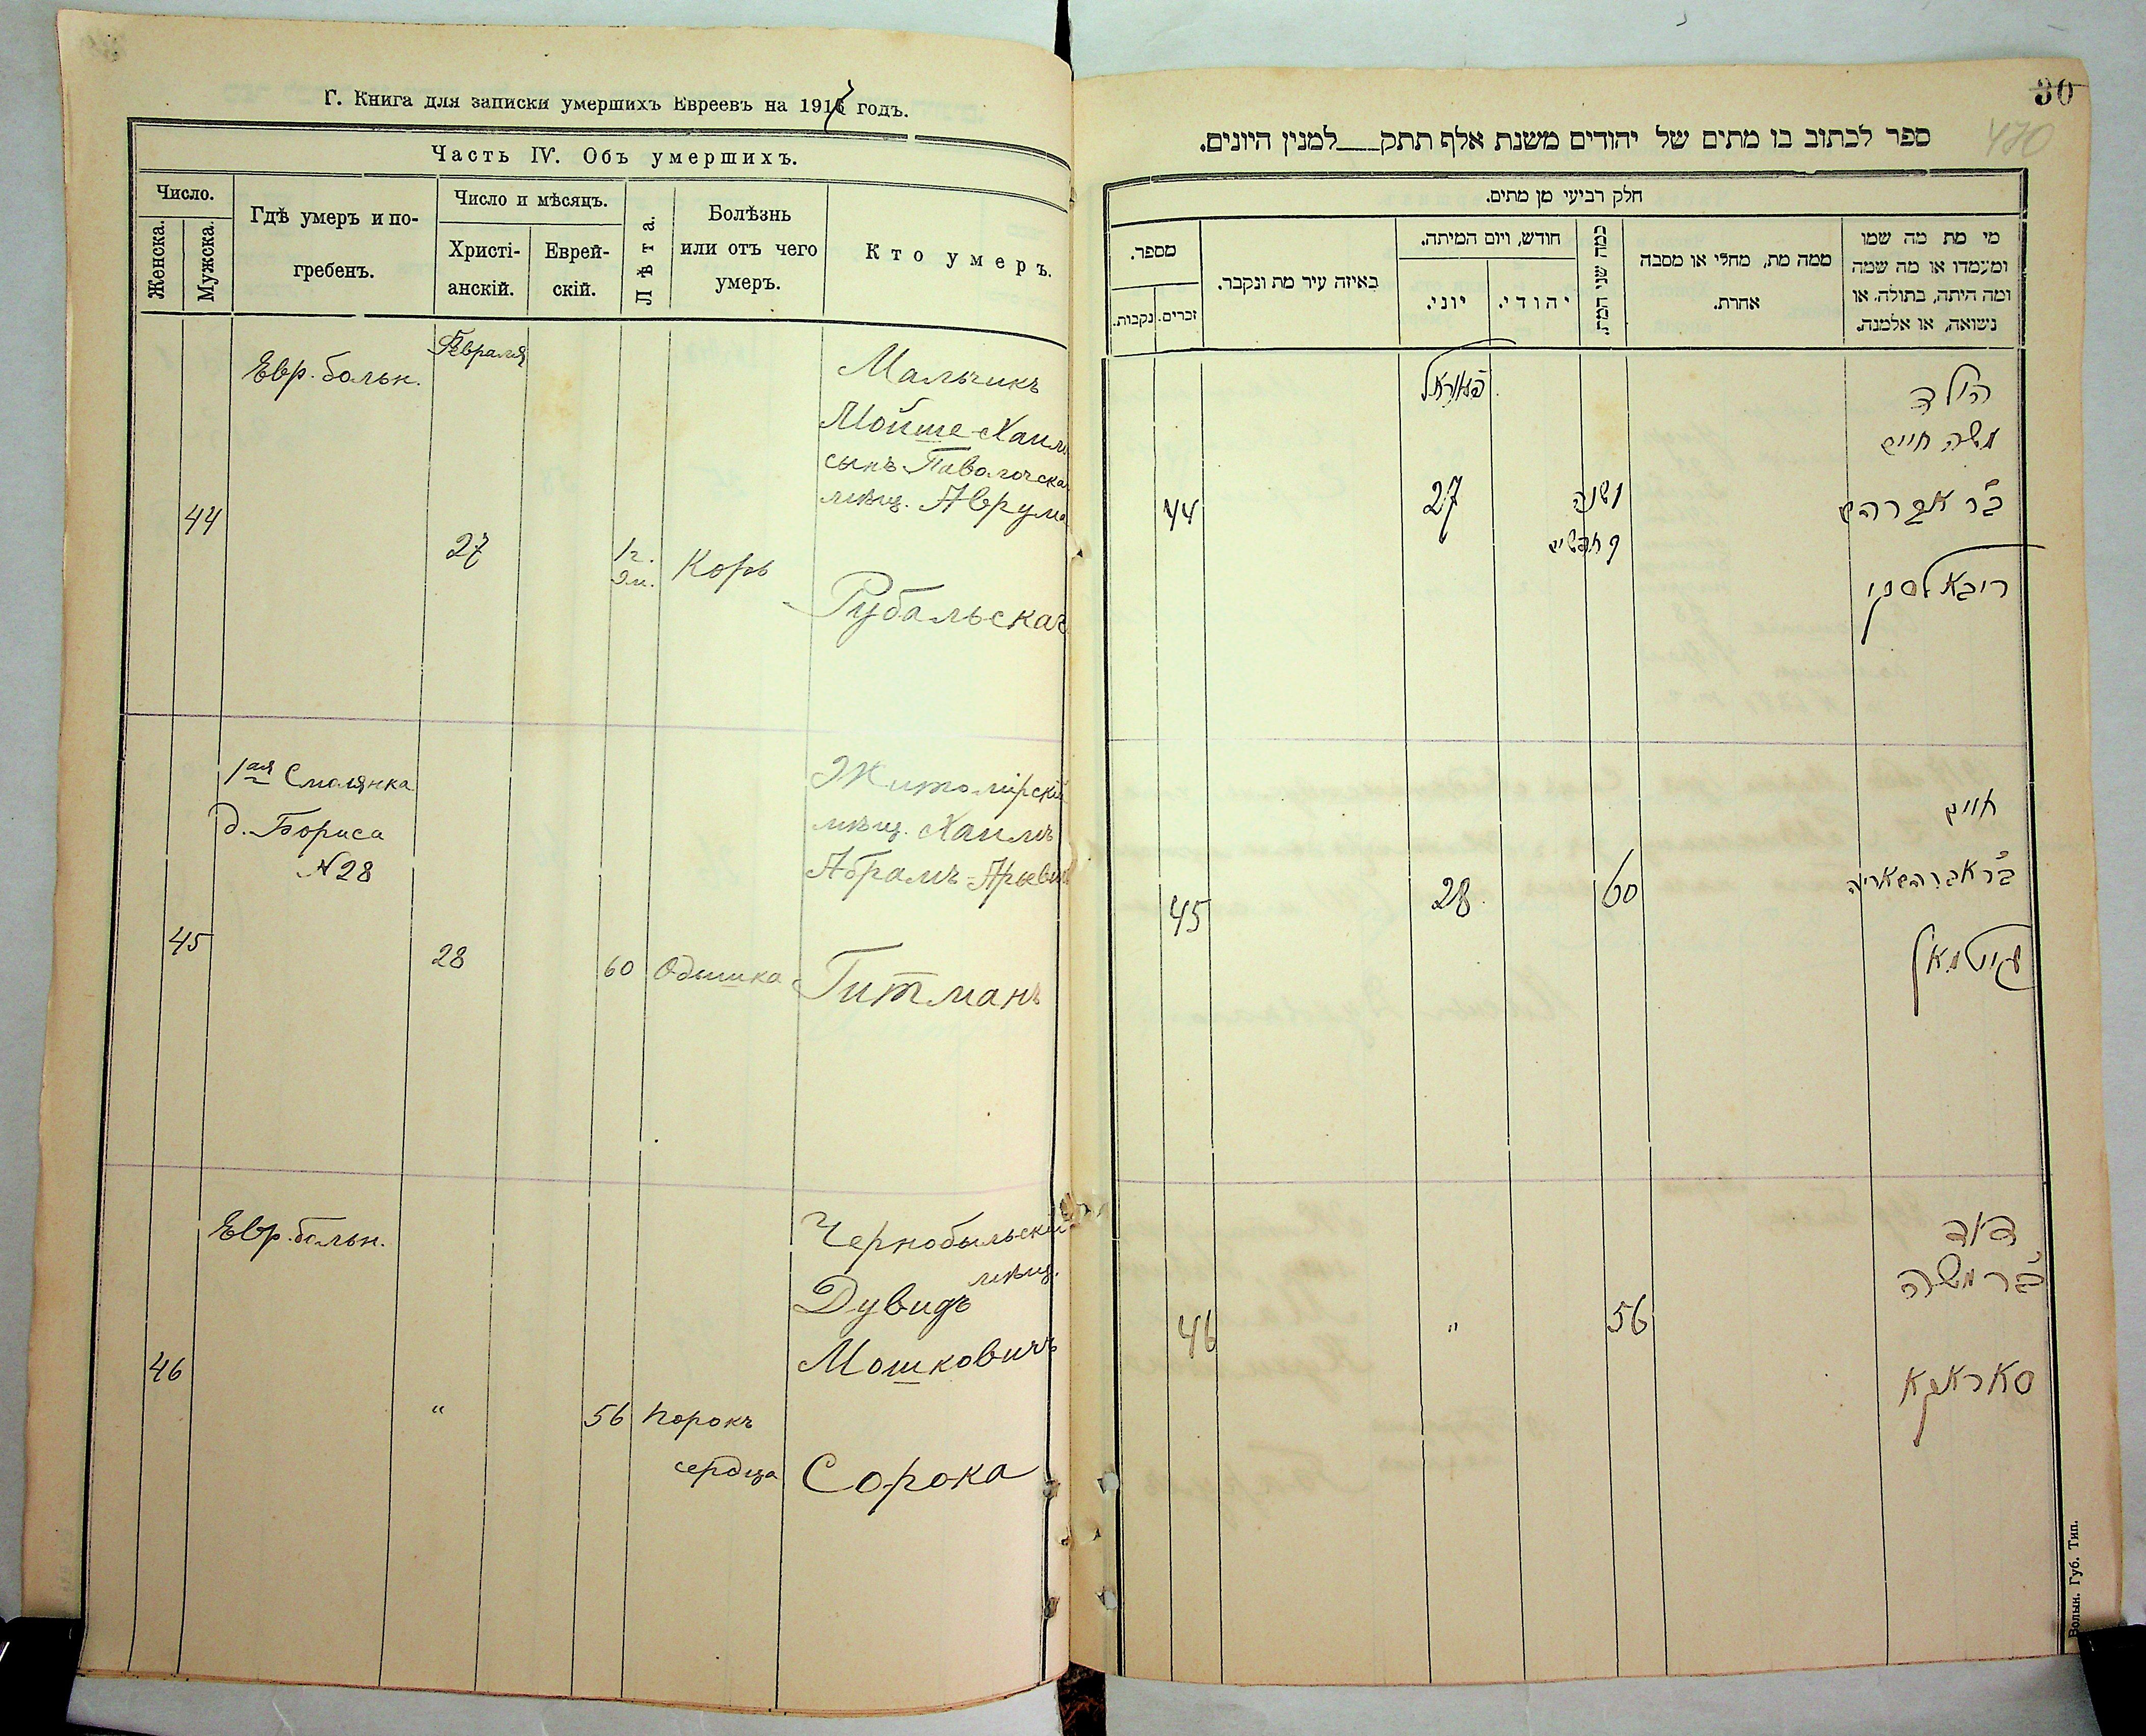 Г. Книга для записки умершихъ Евреевъ на 1917 годъ.
Часть IV. Объ умершихъ.
Число.
Женска.
Мужска.
Гдѣ умеръ и по-
гребенъ.
Число и мѣсяцъ.
Христі-
анскій.
Еврей-
скій.
Лѣта.
Болѣзнь
или отъ чего
умеръ.
Кто умеръ.
Февраля
Евр. больн.
44
27
1 г.
9 м.
Корь
Мальчикъ
Мойше-Хаимъ
сынъ Паволочска
мѣщ. Аврума
Рубальскаг
1ая Смолянка
д. Бориса
№ 28
45
28
60
Одышка
Житомірскій
мѣщ. Хаимъ
Абрамъ-Арьев
Гитманъ
Евр. больн.
46
"
56
Порокъ
сердца
Чернобыльскій
мѣщ.
Дувидъ
Мошковичъ
Сорока
30
470
ספר לכתוב בו מתים של יהודים משנת אלף תתק___למנין היונים.
חלק רביעי מן מתים.
מספר.
נקבות.
זכרים.
באיזה עיר מת ונקבר.
חודש, ויום המיתה.
יוני.
יהודי.
כמה שני המת.
ממה מת, מחלי או מסבה
אחרת.
מי מת מה שמו
ומעמדו או מה שמה
ומה היתה, בתולה, או
נשואה, או אלמנה.
פאווראל
44
27
1 שנה
9 חדשים
הילד
משה חיים
ב"ר אברהם
ריבאלסקי
45
28
60
חיים
ב"ר אברהם אריה
גיטמאן
46
"
56
דוד
ב"ר משה
סאראקא
Волын. Губ. Тип.